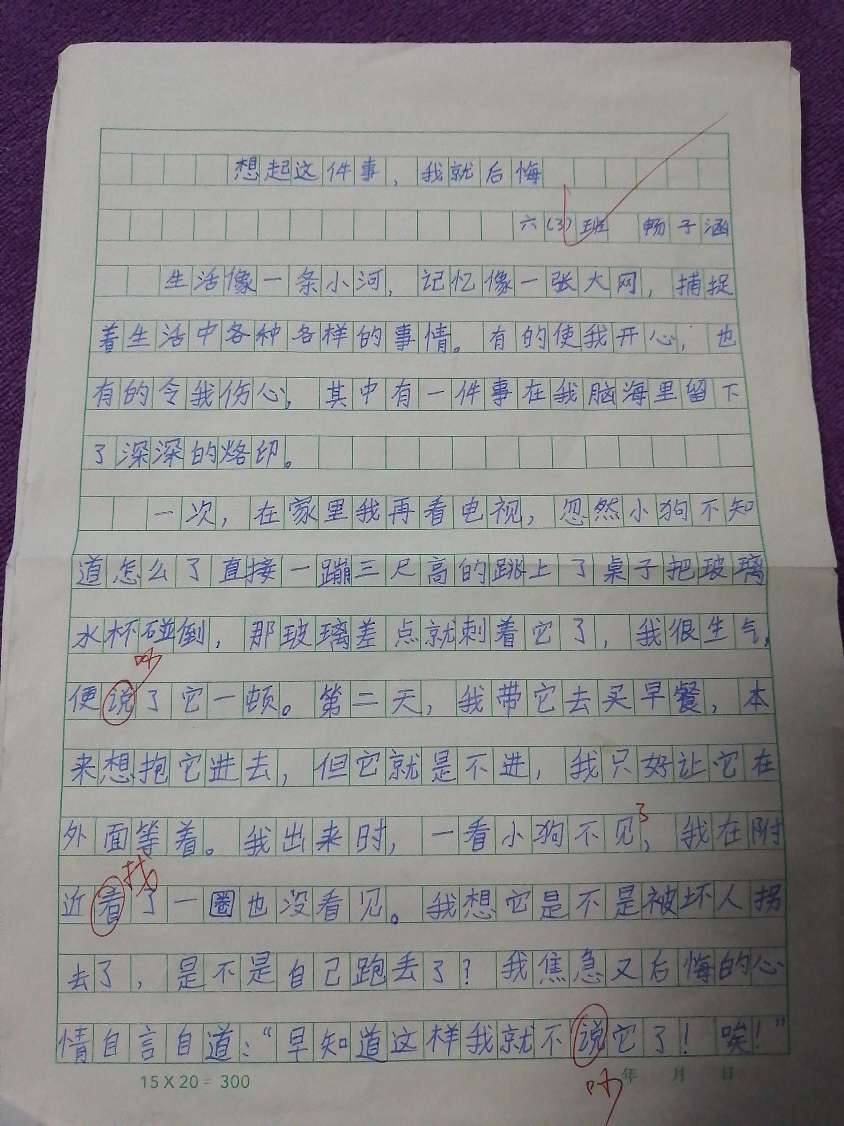 想起这件事，我就后悔
六（3）班 畅子涵
生活像一条小河，记忆像一张大网，捕捉
着生活中各种各样的事情。有的使我开心，也
有的令我伤心，其中有一件事在我脑海里留下
了深深的烙印。
一次，在家里我再看电视，忽然小狗不知
道怎么了直接一蹦三尺高的跳上了桌子把玻璃
水杯碰倒，那玻璃差点就刺着它了，我很生气，
吵
便说了它一顿。第二天，我带它去买早餐，本
来想抱它进去，但它就是不进，我只好让它在
了
外面等着。我出来时，一看小狗不见，我在附
找
近看了一圈也没看见。我想它是不是被坏人拐
去了，是不是自己跑丢了？我焦急又后悔的心
情自言自道：“早知道这样我就不说它了！唉！”
吵
15×20=300 年 月 日